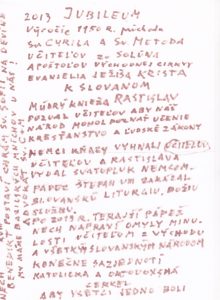 2013 JUBILEUM
VÝROČIE 1150 R. príchodu
SV. CYRILA A SV. METODA
UČITEĽOV ZO SOLÚNA
APOŠTOLOV VÝCHODNEJ CIRKVI
EVANJELIA JEŽIŠA KRISTA
K SLOVANOM
MÚDRY KNIEŽA RASTISLAV
POZVAL UČITEĽOV ABY NÁŠ
NÁROD MOHOL POZNAŤ UČENIE
KRESŤANSTVO A ĽUDSKÉ ZÁKONY
NEMCI KŇAZY VYHNALI UČITEĽOV
UČITEĽOV A RASTISLAVA
VYDAL SVATOPLUK NEMCOM.
PÁPEŽ ŠTEFAN VI. ZAKÁZAL
SLOVANSKÚ LITURGIU, BOŽIU
SLUŽBU.
NECH NAPRAVÍ OMYLY MINU-
LOSTI UČITEĽOM Z VÝCHODU
A VŠETKÝM SLOVANSKÝM NÁRODOM
KONEČNE ZAJEDNOTÍ
KATOLICKA A ORTODOXNÁ
CIRKEV
ABY VŠETCI JEDNO BOLI